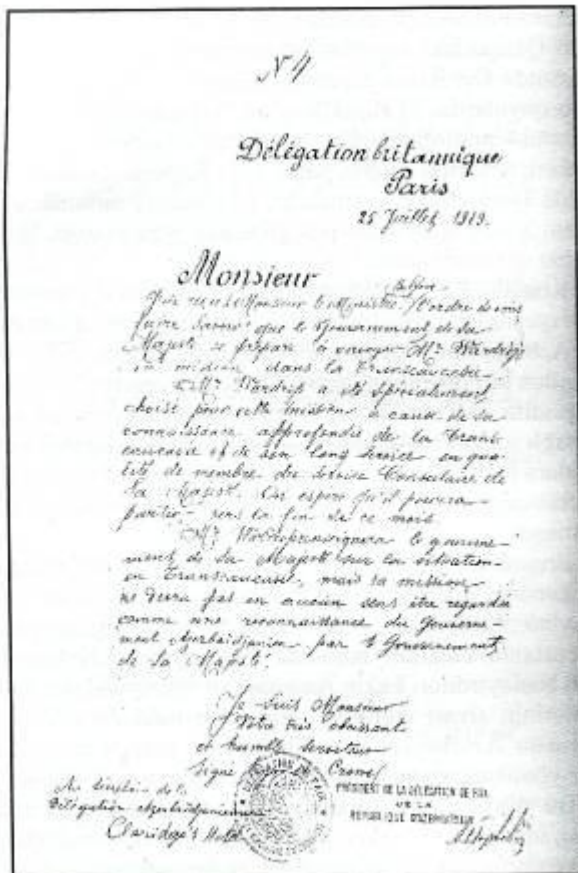 N 4
Délégation britannique
Paris
25 Juillet 1919.
Monsieur
J'ai reçu Monsieur le Ministre, l'ordre de vous
faire savoir que le Gouvernement de Sa
Majesté se prépare à envoyer Mr. Wardrop
en mission dans la Transcaucasie.
Mr. Wardrop a été spécialement
choisi pour cette mission à cause de sa
connaissance approfondie de la Trans
caucasie et de son long service en qua
lité de membre du service Consulaire de
Sa Majesté. On espère qu'il pourra
partir vers la fin de ce mois.
Mr. renseignera le gouverne
ment de Sa Majesté sur la situation
en Transcaucasie, mais sa mission
ne devra pas en aucun sens être regardée
comme une reconnaissance du Gouverne
ment Azerbaidjanien par le Gouvernement
de Sa Majesté.
Je suis Monsieur
Votre très obéissant
et humble serviteur
Signé Crowe
PRÉSIDENT DE LA DÉLÉGATION DE PAIX
DE LA
RÉPUBLIQUE D'AZERBAIDJAN
de la
Délégation Azerbaidjanienne
Claridge's Hotel